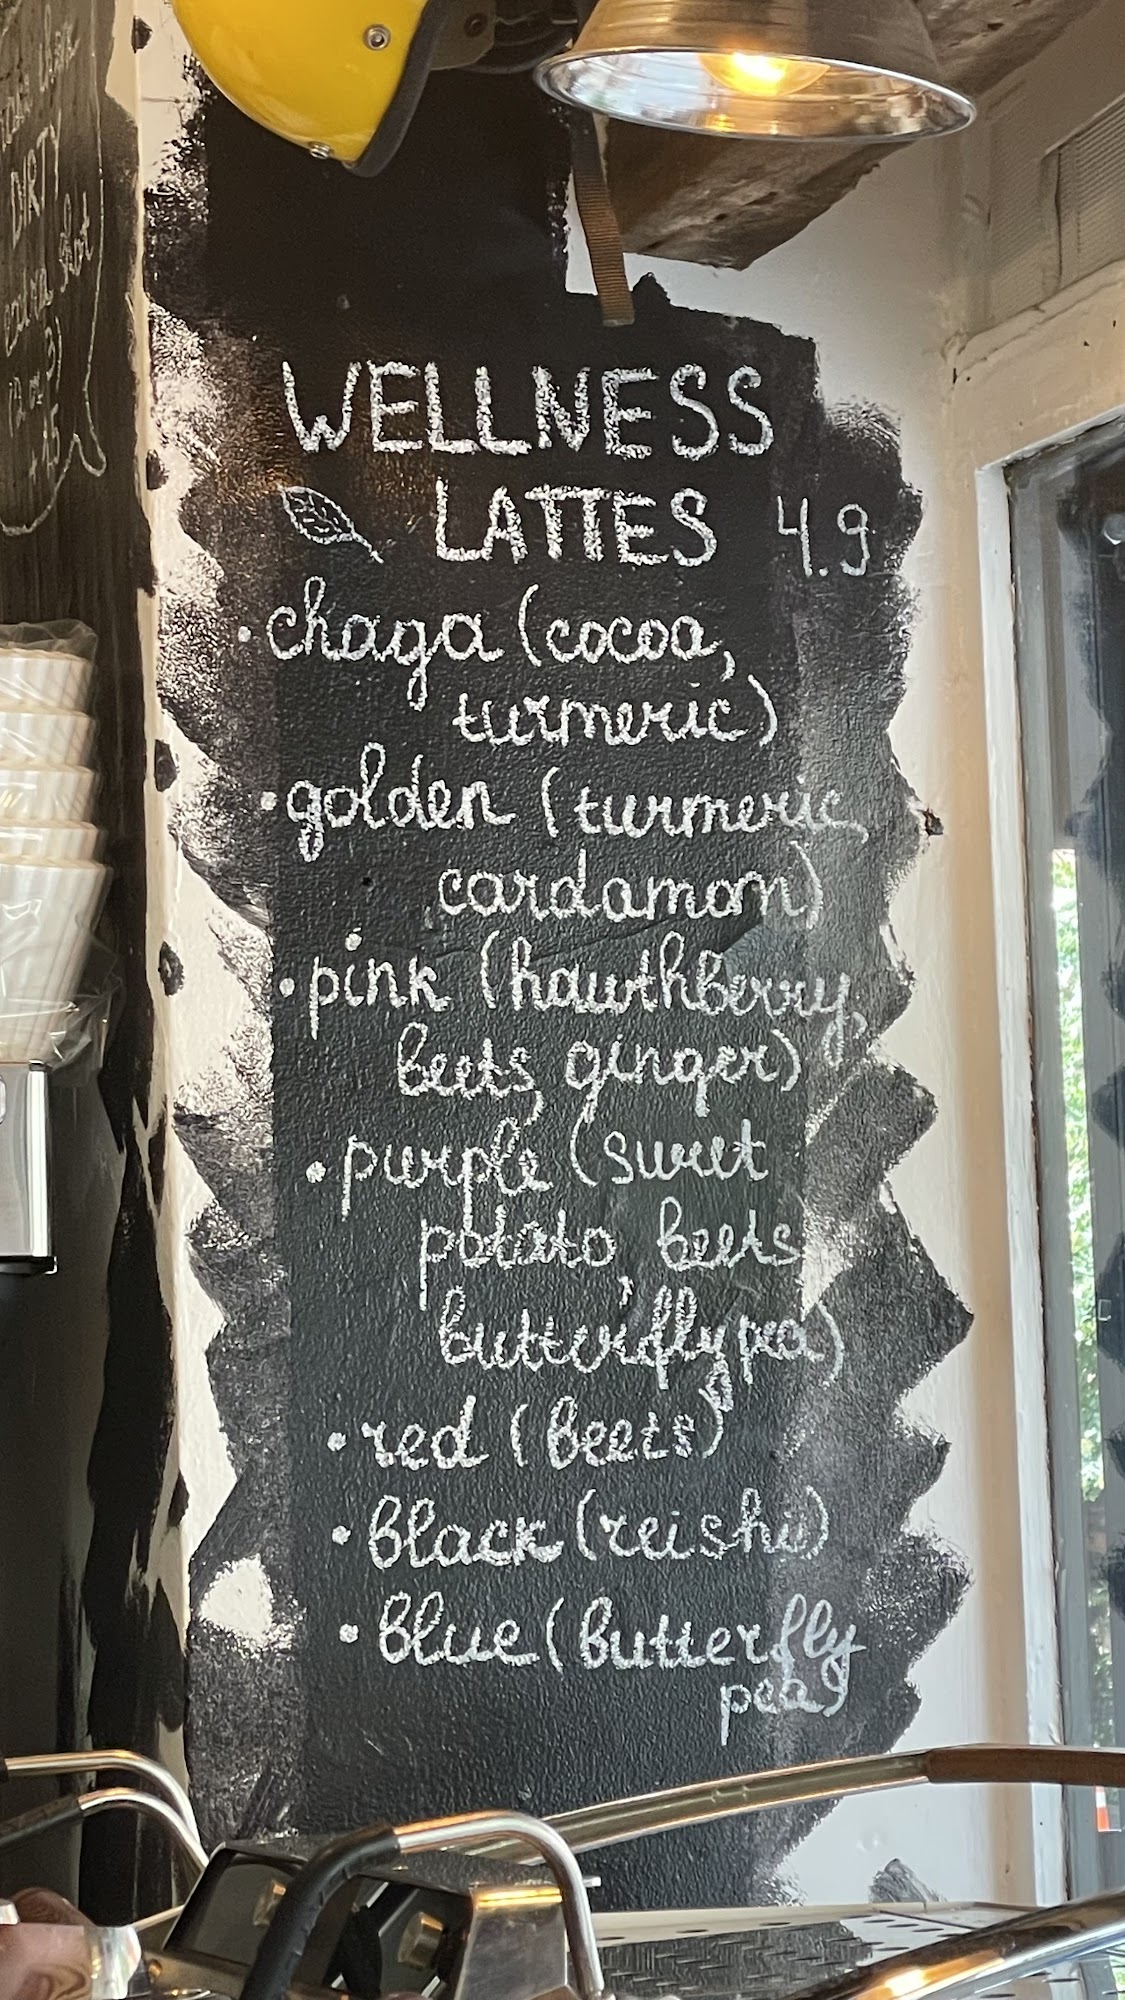 DIRT
WELLNESS
LATTES 4.9
• chaga (cocoa,
turmeric)
• golden (turmeric,
cardamon)
• pink (hawthberry,
beets, ginger)
• purple (sweet
potato, beets
butterfly pea)
• red (beets)
• black (reishi)
• blue (butterfly
pea)